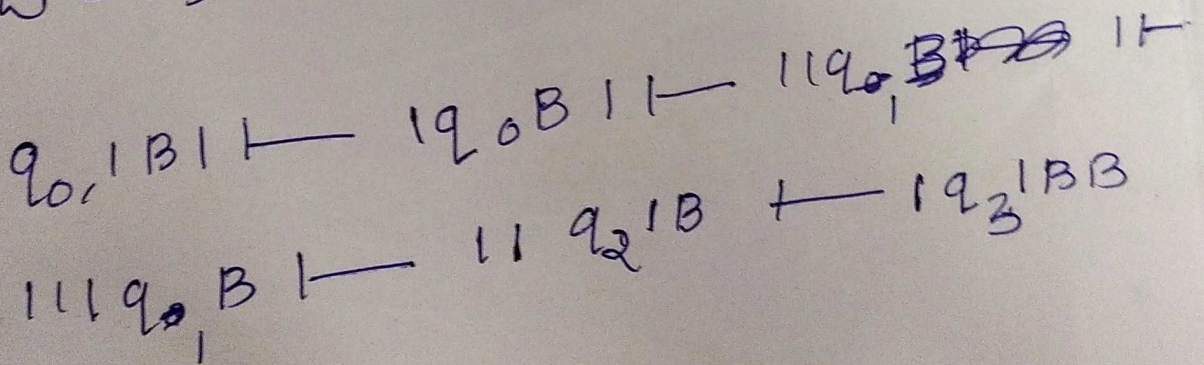 q₀,1B1 ⊢ 1q₀B1 ⊢ 11q₁ 1 ⊢
111q₁B ⊢ 11q₂1B ⊢ 1q₃1BB